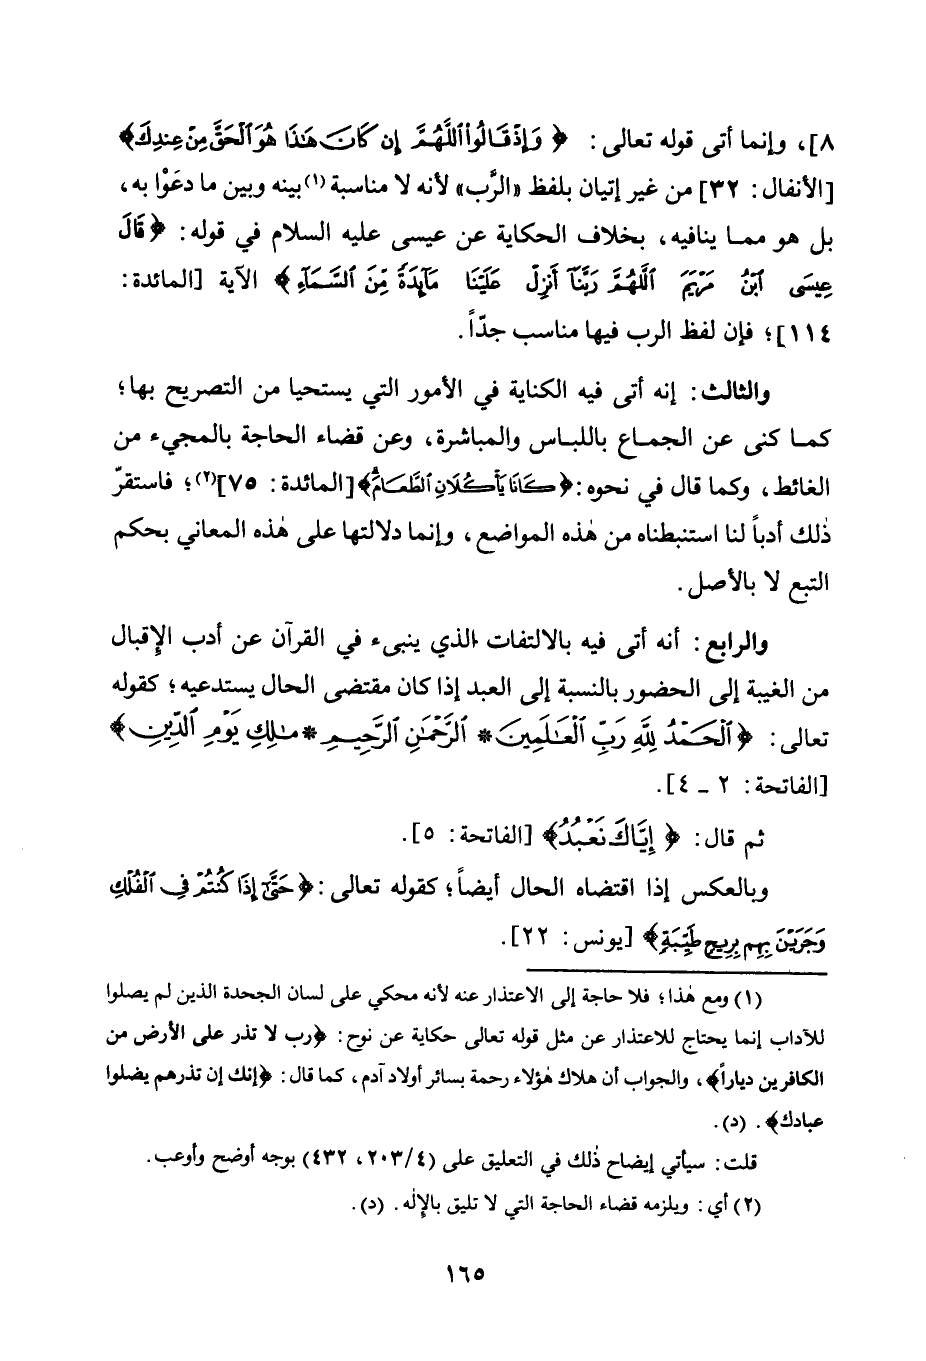 ٨]، وإنما أتى قوله تعالى: ﴿وَإِذْ قَالُواْ ٱللَّهُمَّ إِن كَانَ هَٰذَا هُوَ ٱلْحَقَّ مِنْ عِندِكَ﴾
[الأنفال: ٣٢] من غير إتيان بلفظ «الرَّب» لأنه لا مناسبة (١) بينه وبين ما دعَوْا به،
بل هو مما ينافيه، بخلاف الحكاية عن عيسى عليه السلام في قوله: ﴿قَالَ
عِيسَى ٱبْنُ مَرْيَمَ ٱللَّهُمَّ رَبَّنَآ أَنزِلْ عَلَيْنَا مَآئِدَةً مِّنَ ٱلسَّمَآءِ﴾ الآية [المائدة:
١١٤]؛ فإن لفظ الرب فيها مناسب جدّاً.
والثالث: إنه أتى فيه الكناية في الأمور التي يستحيا من التصريح بها؛
كما كنى عن الجماع باللباس والمباشرة، وعن قضاء الحاجة بالمجيء من
الغائط، وكما قال في نحوه: ﴿كَانَا يَأْكُلَانِ ٱلطَّعَامَ﴾ [المائدة: ٧٥] (٢)؛ فاستقرّ
ذٰلك أدباً لنا استنبطناه من هٰذه المواضع، وإنما دلالتها على هٰذه المعاني بحكم
التبع لا بالأصل.
والرابع: أنه أتى فيه بالالتفات الذي ينبىء في القرآن عن أدب الإقبال
من الغيبة إلى الحضور بالنسبة إلى العبد إذا كان مقتضى الحال يستدعيه؛ كقوله
تعالى: ﴿ٱلْحَمْدُ لِلَّهِ رَبِّ ٱلْعَٰلَمِينَ * ٱلرَّحْمَٰنِ ٱلرَّحِيمِ * مَٰلِكِ يَوْمِ ٱلدِّينِ﴾
[الفاتحة: ٢ - ٤].
ثم قال: ﴿إِيَّاكَ نَعْبُدُ﴾ [الفاتحة: ٥].
وبالعكس إذا اقتضاه الحال أيضاً؛ كقوله تعالى: ﴿حَتَّىٰٓ إِذَا كُنتُمْ فِى ٱلْفُلْكِ
وَجَرَيْنَ بِهِم بِرِيحٍ طَيِّبَةٍ﴾ [يونس: ٢٢].
(١) ومع هٰذا؛ فلا حاجة إلى الاعتذار عنه لأنه محكي على لسان الجحدة الذين لم يصلوا
للآداب إنما يحتاج للاعتذار عن مثل قوله تعالى حكاية عن نوح: ﴿رب لا تذر على الأرض من
الكافرين دياراً﴾، والجواب أن هلاك هٰؤلاء رحمة بسائر أولاد آدم، كما قال: ﴿إنك إن تذرهم يضلوا
عبادك﴾. (د).
قلت: سيأتي إيضاح ذٰلك في التعليق على (٤/٢٠٣، ٤٣٢) بوجه أوضح وأوعب.
(٢) أي: ويلزمه قضاء الحاجة التي لا تليق بالإلٰه. (د).
١٦٥